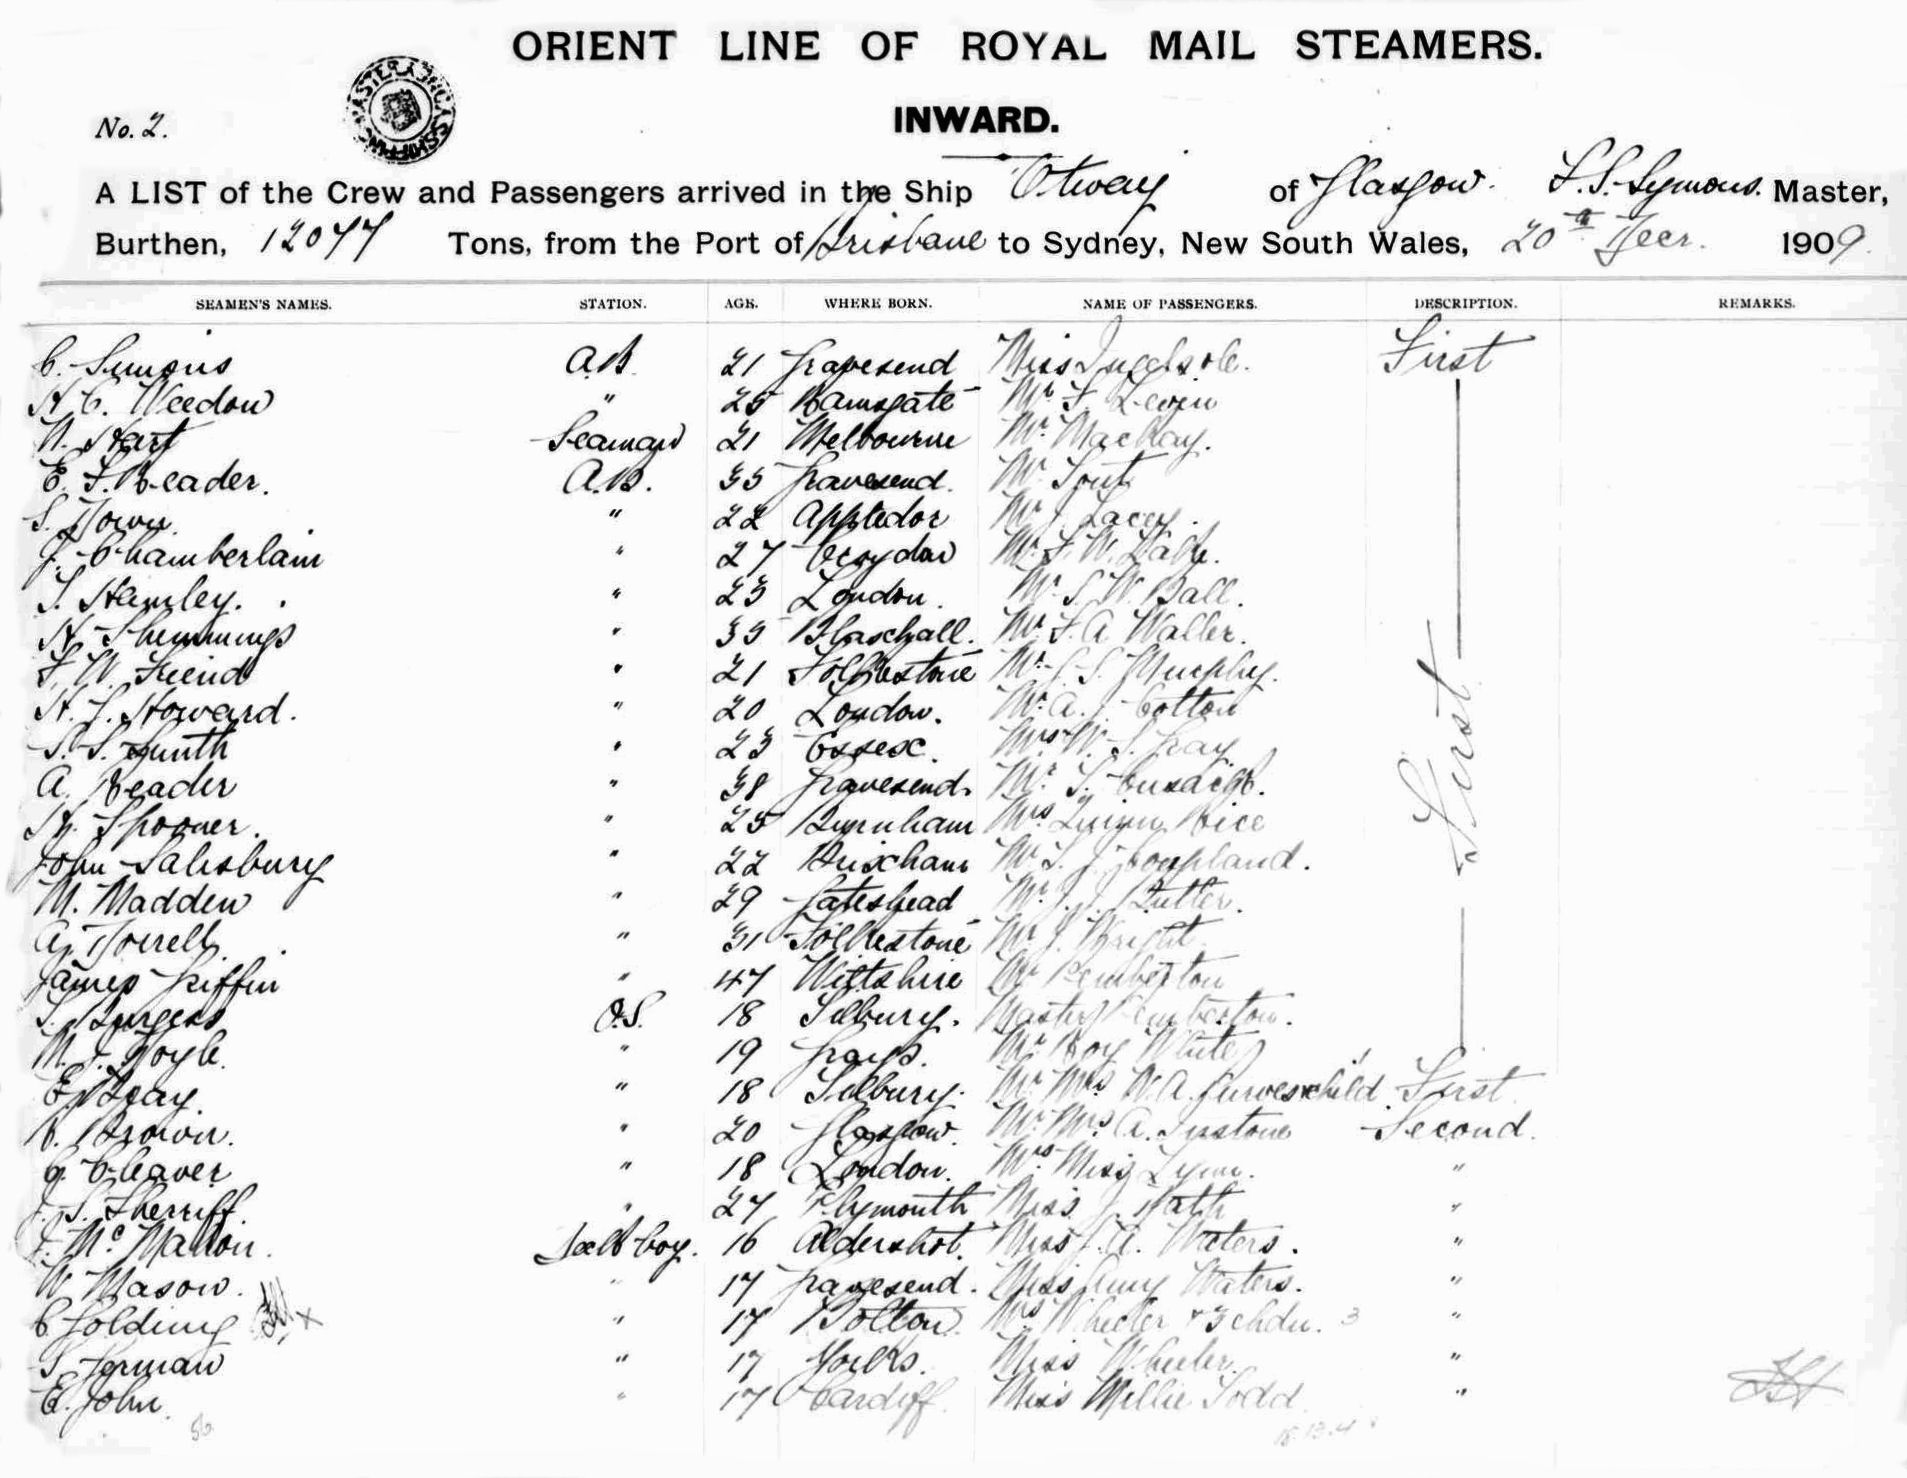 ORIENT LINE OF ROYAL MAIL STEAMERS.
INWARD.
No. 2.
A LIST of the Crew and Passengers arrived in the Ship Otway of Glasgow. Symons. Master,
Burthen, 12077 Tons, from the Port of Brisbane to Sydney, New South Wales, 20th Decr. 1909
SEAMEN'S NAMES. STATION. AGE. WHERE BORN. NAME OF PASSENGERS. DESCRIPTION. REMARKS.
C. Simons A.B. 21 Gravesend Miss First
H. C. Weedon " 25 Ramsgate Mr. F. Levin
N. Hart Seaman 21 Melbourne Mr. MacKay.
E. F. Reader. A.B. 35 Gravesend. Mr.
S. Down " 22 Appledor Mr J. Lacey.
J. Chamberlain " 27 Croydon Mr. F. W.
Hanley. " 23 London. Mr. S. W. Ball.
H. Shemmings " 35 Blaxhall. Mr. F. A. Waller.
F. W. Friend " 21 Folkestone Mr. Murphy.
H. J. Howard. " 20 London. Mr. A. J. Cotton
S. S. Smith " 23 Essex. Mrs W. S. Gray
A. Reader " 38 Gravesend. Mr. Cusack. First
H. Spooner. " 25 Burnham Mrs Quinn Rice
John Salisbury " 22 Brixham Mr. Coupland.
M. Madden " 29 Gateshead Mr. J. J. Butler.
A. " 31 Folkestone Mr. J. Wright
James Griffin " 47 Wiltshire Mr Pemberton
Burgess O.S. 18 Tilbury. Master Pemberton.
M. J. Doyle. " 19 Grays. Mr Roy White
E. Bray. " 18 Tilbury. Mr Mrs W. A. child First
Brown. " 20 Glasgow. Mr. Mrs A. Instone Second.
G. Cleaver " 18 London. Mrs. Miss Lynn. "
J. S. Sherriff. " 27 Plymouth Miss J. "
McMahon. Deck boy. 16 Aldershot. Miss J. A. Waters. "
W. Mason. " 17 Gravesend. Miss Amy Waters. "
C. Golding " 17 Bolton. Mrs Wheeler + 3 chdn. 3 "
Forman " 17 Yorks. Miss Wheeler. "
E. John. " 17 Cardiff. Miss Millie Todd "